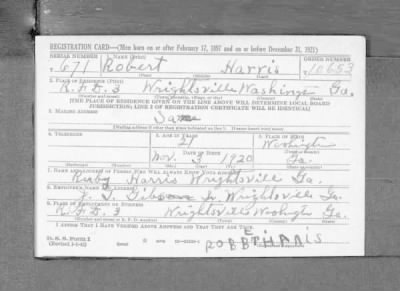 REGISTRATION CARD—(Men born on or after February 17, 1897 and on or before December 31, 1921)
SERIAL NUMBER 1. NAME (Print) ORDER NUMBER
671 Robert Harris 10653
(First) (Middle) (Last)
2. PLACE OF RESIDENCE (Print)
R.F.D. 3 Wrightsville Washington Ga.
(Number and street) (Town, township, village, or city) (County) (State)
[THE PLACE OF RESIDENCE GIVEN ON THE LINE ABOVE WILL DETERMINE LOCAL BOARD
JURISDICTION; LINE 2 OF REGISTRATION CERTIFICATE WILL BE IDENTICAL]
3. MAILING ADDRESS
Same
[Mailing address if other than place indicated on line 2. If same insert word same]
4. TELEPHONE 5. AGE IN YEARS 6. PLACE OF BIRTH
21 Washington
DATE OF BIRTH (Town or county)
Nov. 3 1920 Ga.
(Exchange) (Number) (Mo.) (Day) (Yr.) (State or country)
7. NAME AND ADDRESS OF PERSON WHO WILL ALWAYS KNOW YOUR ADDRESS
Ruby Harris Wrightsville Ga.
8. EMPLOYER'S NAME AND ADDRESS
Gibson Jr. Wrightsville Ga.
9. PLACE OF EMPLOYMENT OR BUSINESS
R.F.D. 3 Wrightsville Washington Ga.
(Number and street or R. F. D. number) (Town) (County) (State)
I AFFIRM THAT I HAVE VERIFIED ABOVE ANSWERS AND THAT THEY ARE TRUE.
D. S. S. FORM 1
(Revised 1-1-42)